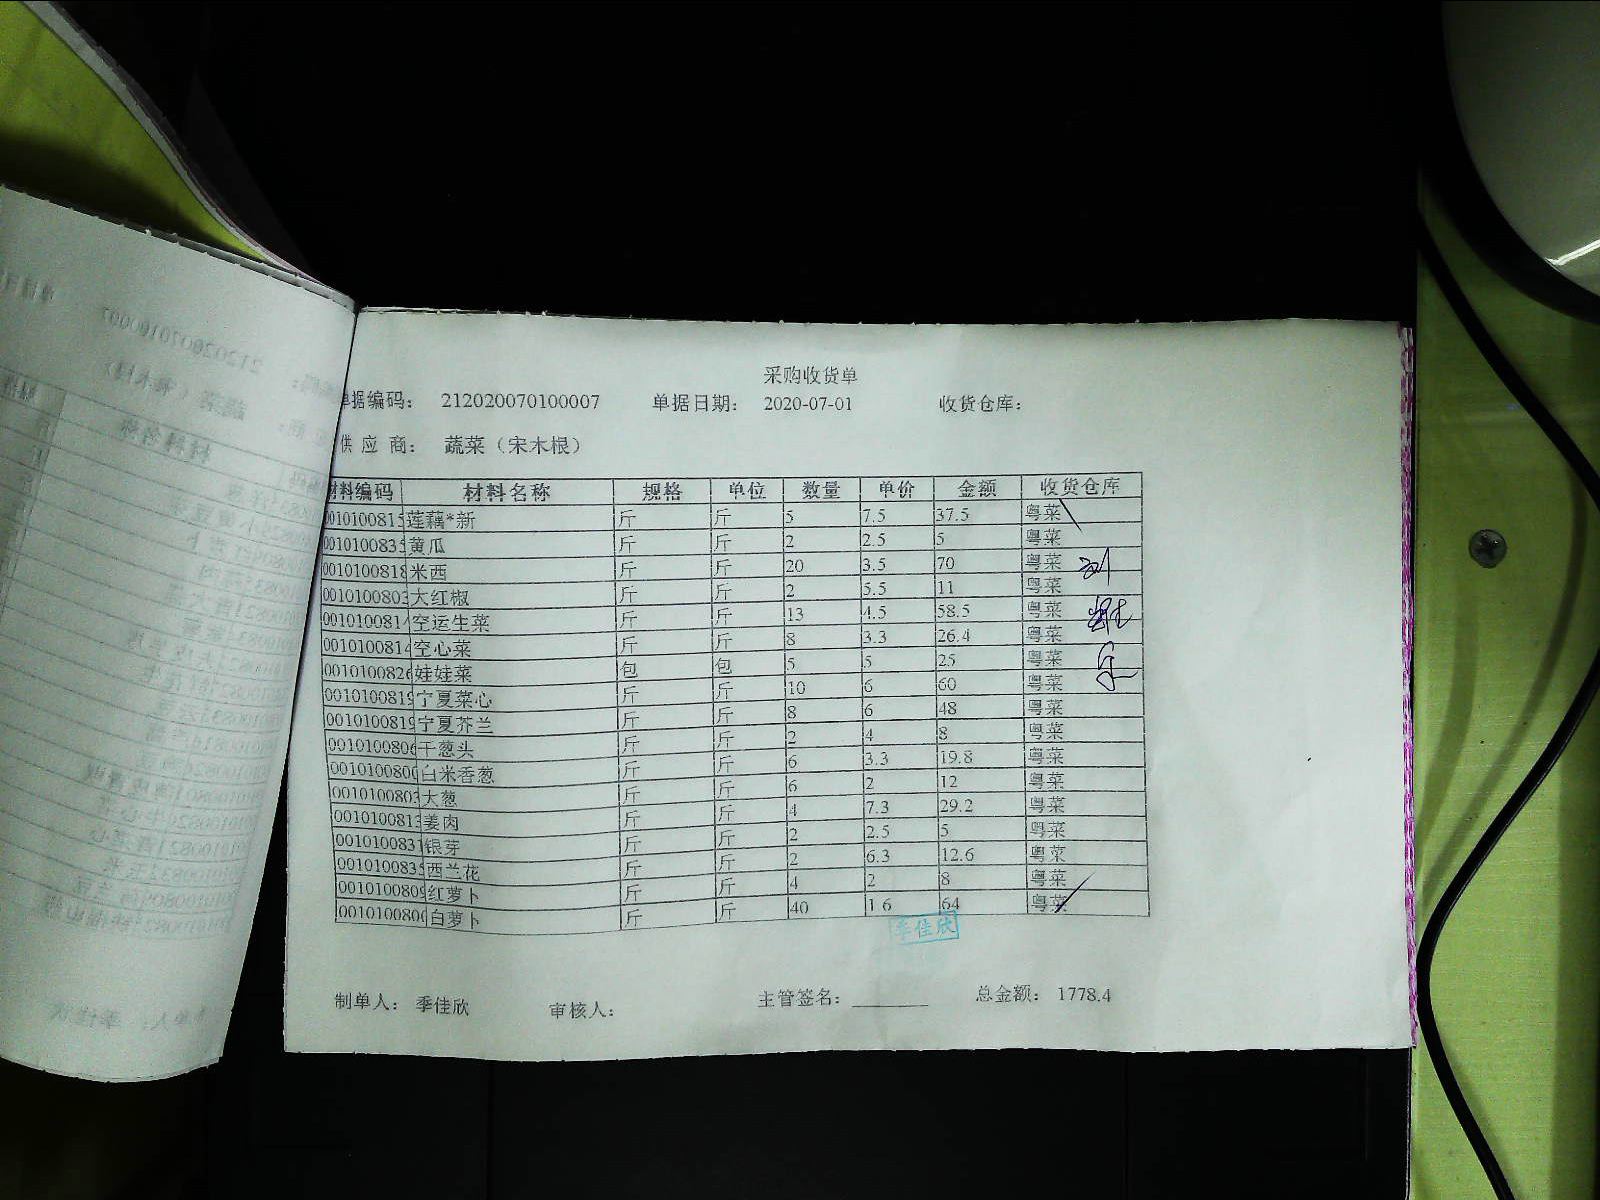 采购收货单
单据编码： 212020070100007 单据日期： 2020-07-01 收货仓库：
供 应 商： 蔬菜（宋木根）
材料编码 材料名称 规格 单位 数量 单价 金额 收货仓库
001010081 莲藕*新 斤 斤 5 7.5 37.5 粤菜
001010083 黄瓜 斤 斤 2 2.5 5 粤菜
001010081 米西 斤 斤 20 3.5 70 粤菜
001010080 大红椒 斤 斤 2 5.5 11 粤菜
001010081 空运生菜 斤 斤 13 4.5 58.5 粤菜
001010081 空心菜 斤 斤 8 3.3 26.4 粤菜
001010082 娃娃菜 包 包 5 5 25 粤菜
001010081 宁夏菜心 斤 斤 10 6 60 粤菜
001010081 宁夏芥兰 斤 斤 8 6 48 粤菜
001010080 干葱头 斤 斤 2 4 8 粤菜
001010080 白米香葱 斤 斤 6 3.3 19.8 粤菜
001010080 大葱 斤 斤 6 2 12 粤菜
001010081 姜肉 斤 斤 4 7.3 29.2 粤菜
001010083 银芽 斤 斤 2 2.5 5 粤菜
001010083 西兰花 斤 斤 2 6.3 12.6 粤菜
001010080 红萝卜 斤 斤 4 2 8 粤菜
001010080 白萝卜 斤 斤 40 1.6 64 粤菜
季佳欣
制单人： 季佳欣 审核人： 主管签名： 总金额： 1778.4